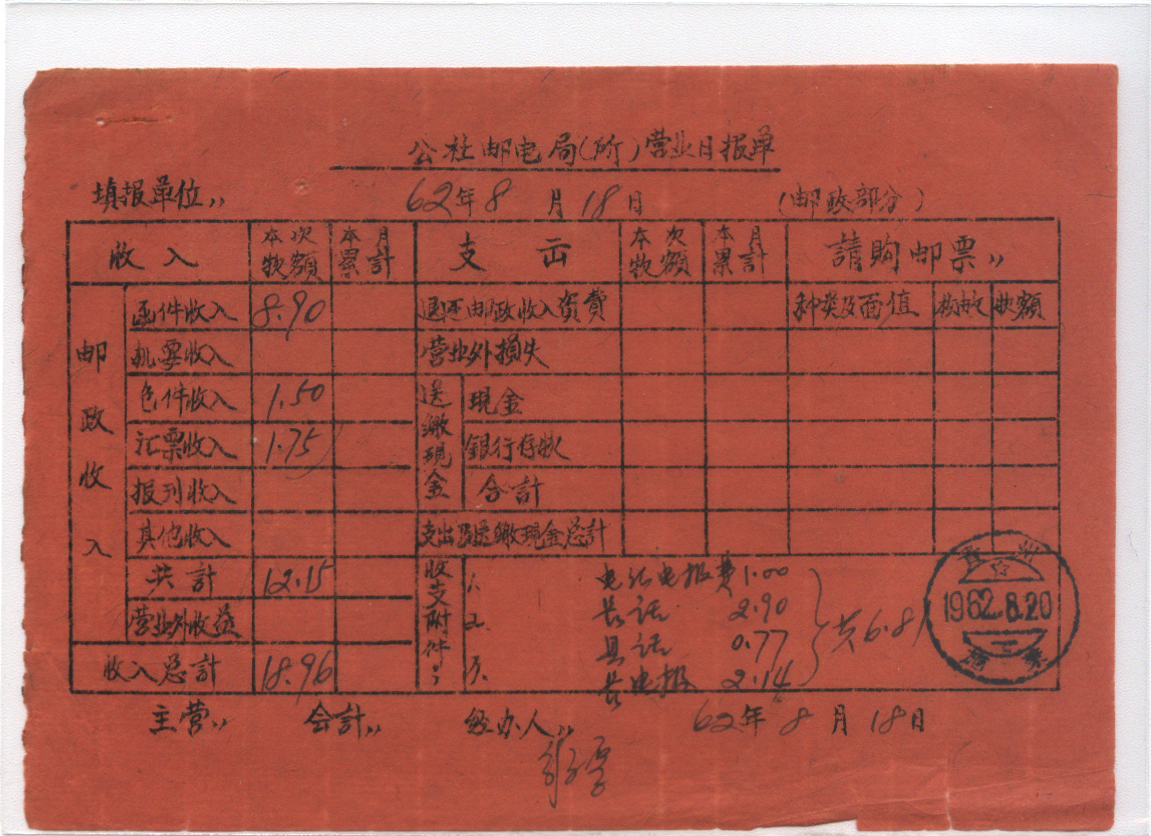 公社邮电局(所)营业日报单
填报单位,, 62年8月18日 (邮政部分)
收入 本次款额 本月累計 支出 本次款额 本月累計 請购邮票,,
邮政收入 函件收入 8.90 退还邮政收入资費 种类及面值 枚数 款額
机要收入 营业外損失
包件收入 1.50 送缴現金 現金
汇票收入 1.75 銀行存款
报刊收入 合計
其他收入 支出及送缴現金总計
共計 12.15 收支附件,, 1. 电话电报费 1.00
营业外收益 2. 长话 2.90
县话 0.77
收入总計 18.96 3. 长电报 2.14
共6.81
1962.8.20
主营,, 会計,, 经办人,, 62年8月18日